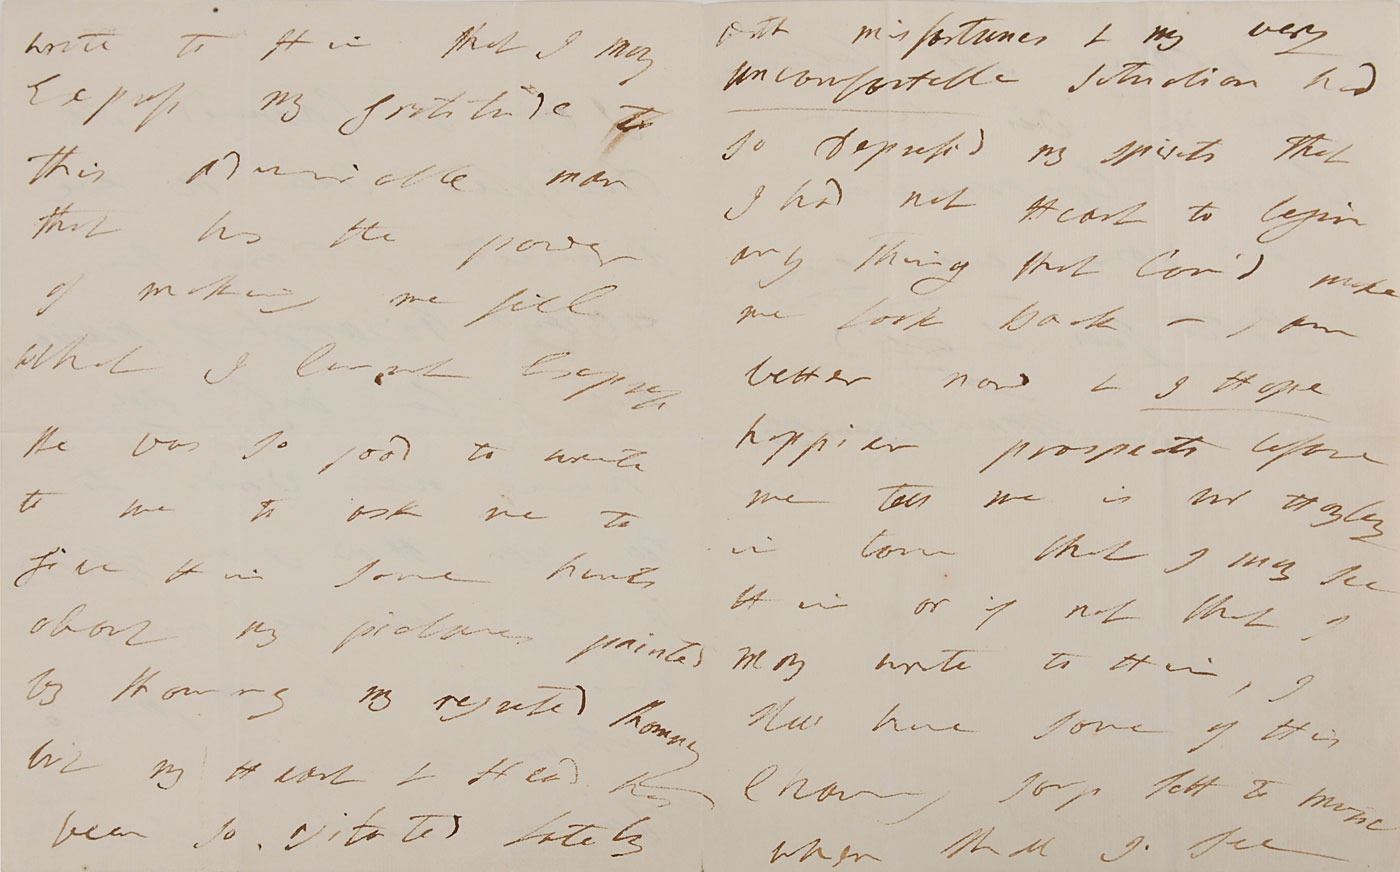 write to Him that I may
Express my gratitude to
this admirable man
that has the power
of making me feel
what I cannot Express
He was so good to write
to me to ask me to
give Him some hints
about my pictures painted
by Romney my regreted Romney
but my Heart & Head has
been so agitated lately
with misfortunes & my very
uncomfortable situation had
so depressed my spirits that
I had not Heart to begin
any thing that Cou'd make
me look back – I am
better now & I Hope
happier prospects before
me tell me is Mr Hayley
in town that I may see
Him or if not that I
may write to Him, I
shall have some of His
charming songs sett to music
when shall I see